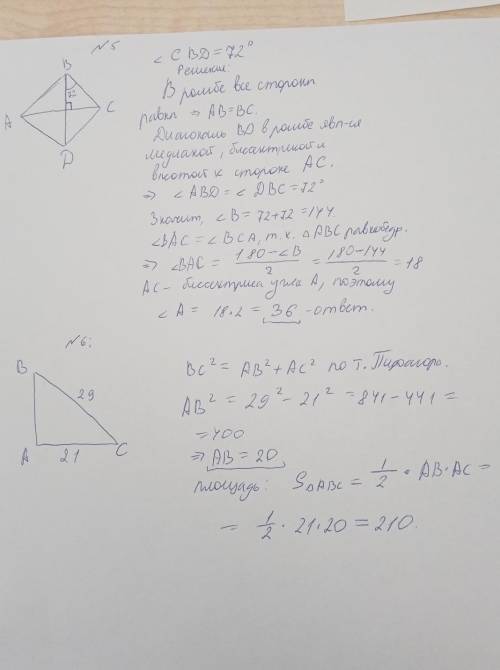 №5
∠CBD = 72°
Решение:
В ромбе все стороны
равны ⇒ AB=BC.
Диагональ BD в ромбе явл-ся
медианой, биссектрисой и
высотой к стороне AC.
⇒ ∠ABD = ∠DBC = 72°
Значит, ∠B = 72+72 = 144.
∠BAC = ∠BCA, т.к. △ABC равнобедр.
⇒ ∠BAC = (180-∠B)/2 = (180-144)/2 = 18
AC - биссектриса угла A, поэтому
∠A = 18·2 = 36 - ответ.
B
72
A
C
D
№6:
BC² = AB² + AC² по т. Пифагора.
AB² = 29² - 21² = 841 - 441 =
= 400
⇒ AB = 20
площадь: S△ABC = 1/2 · AB·AC =
= 1/2 · 21·20 = 210.
B
29
A
21
C